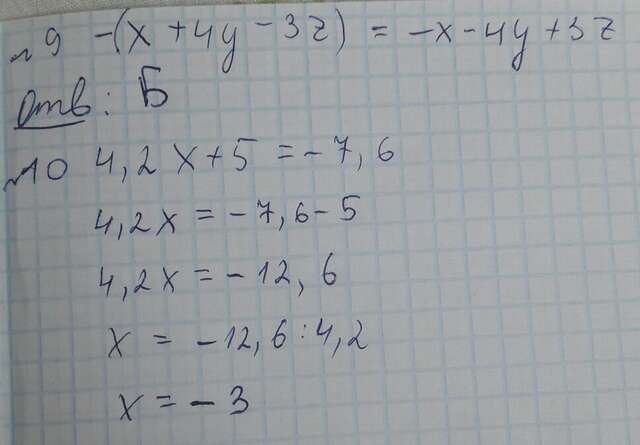 №9 -(x+4y-3z) = -x-4y+3z
Отв: Б
№10 4,2x+5 = -7,6
4,2x = -7,6-5
4,2x = -12,6
x = -12,6:4,2
x = -3